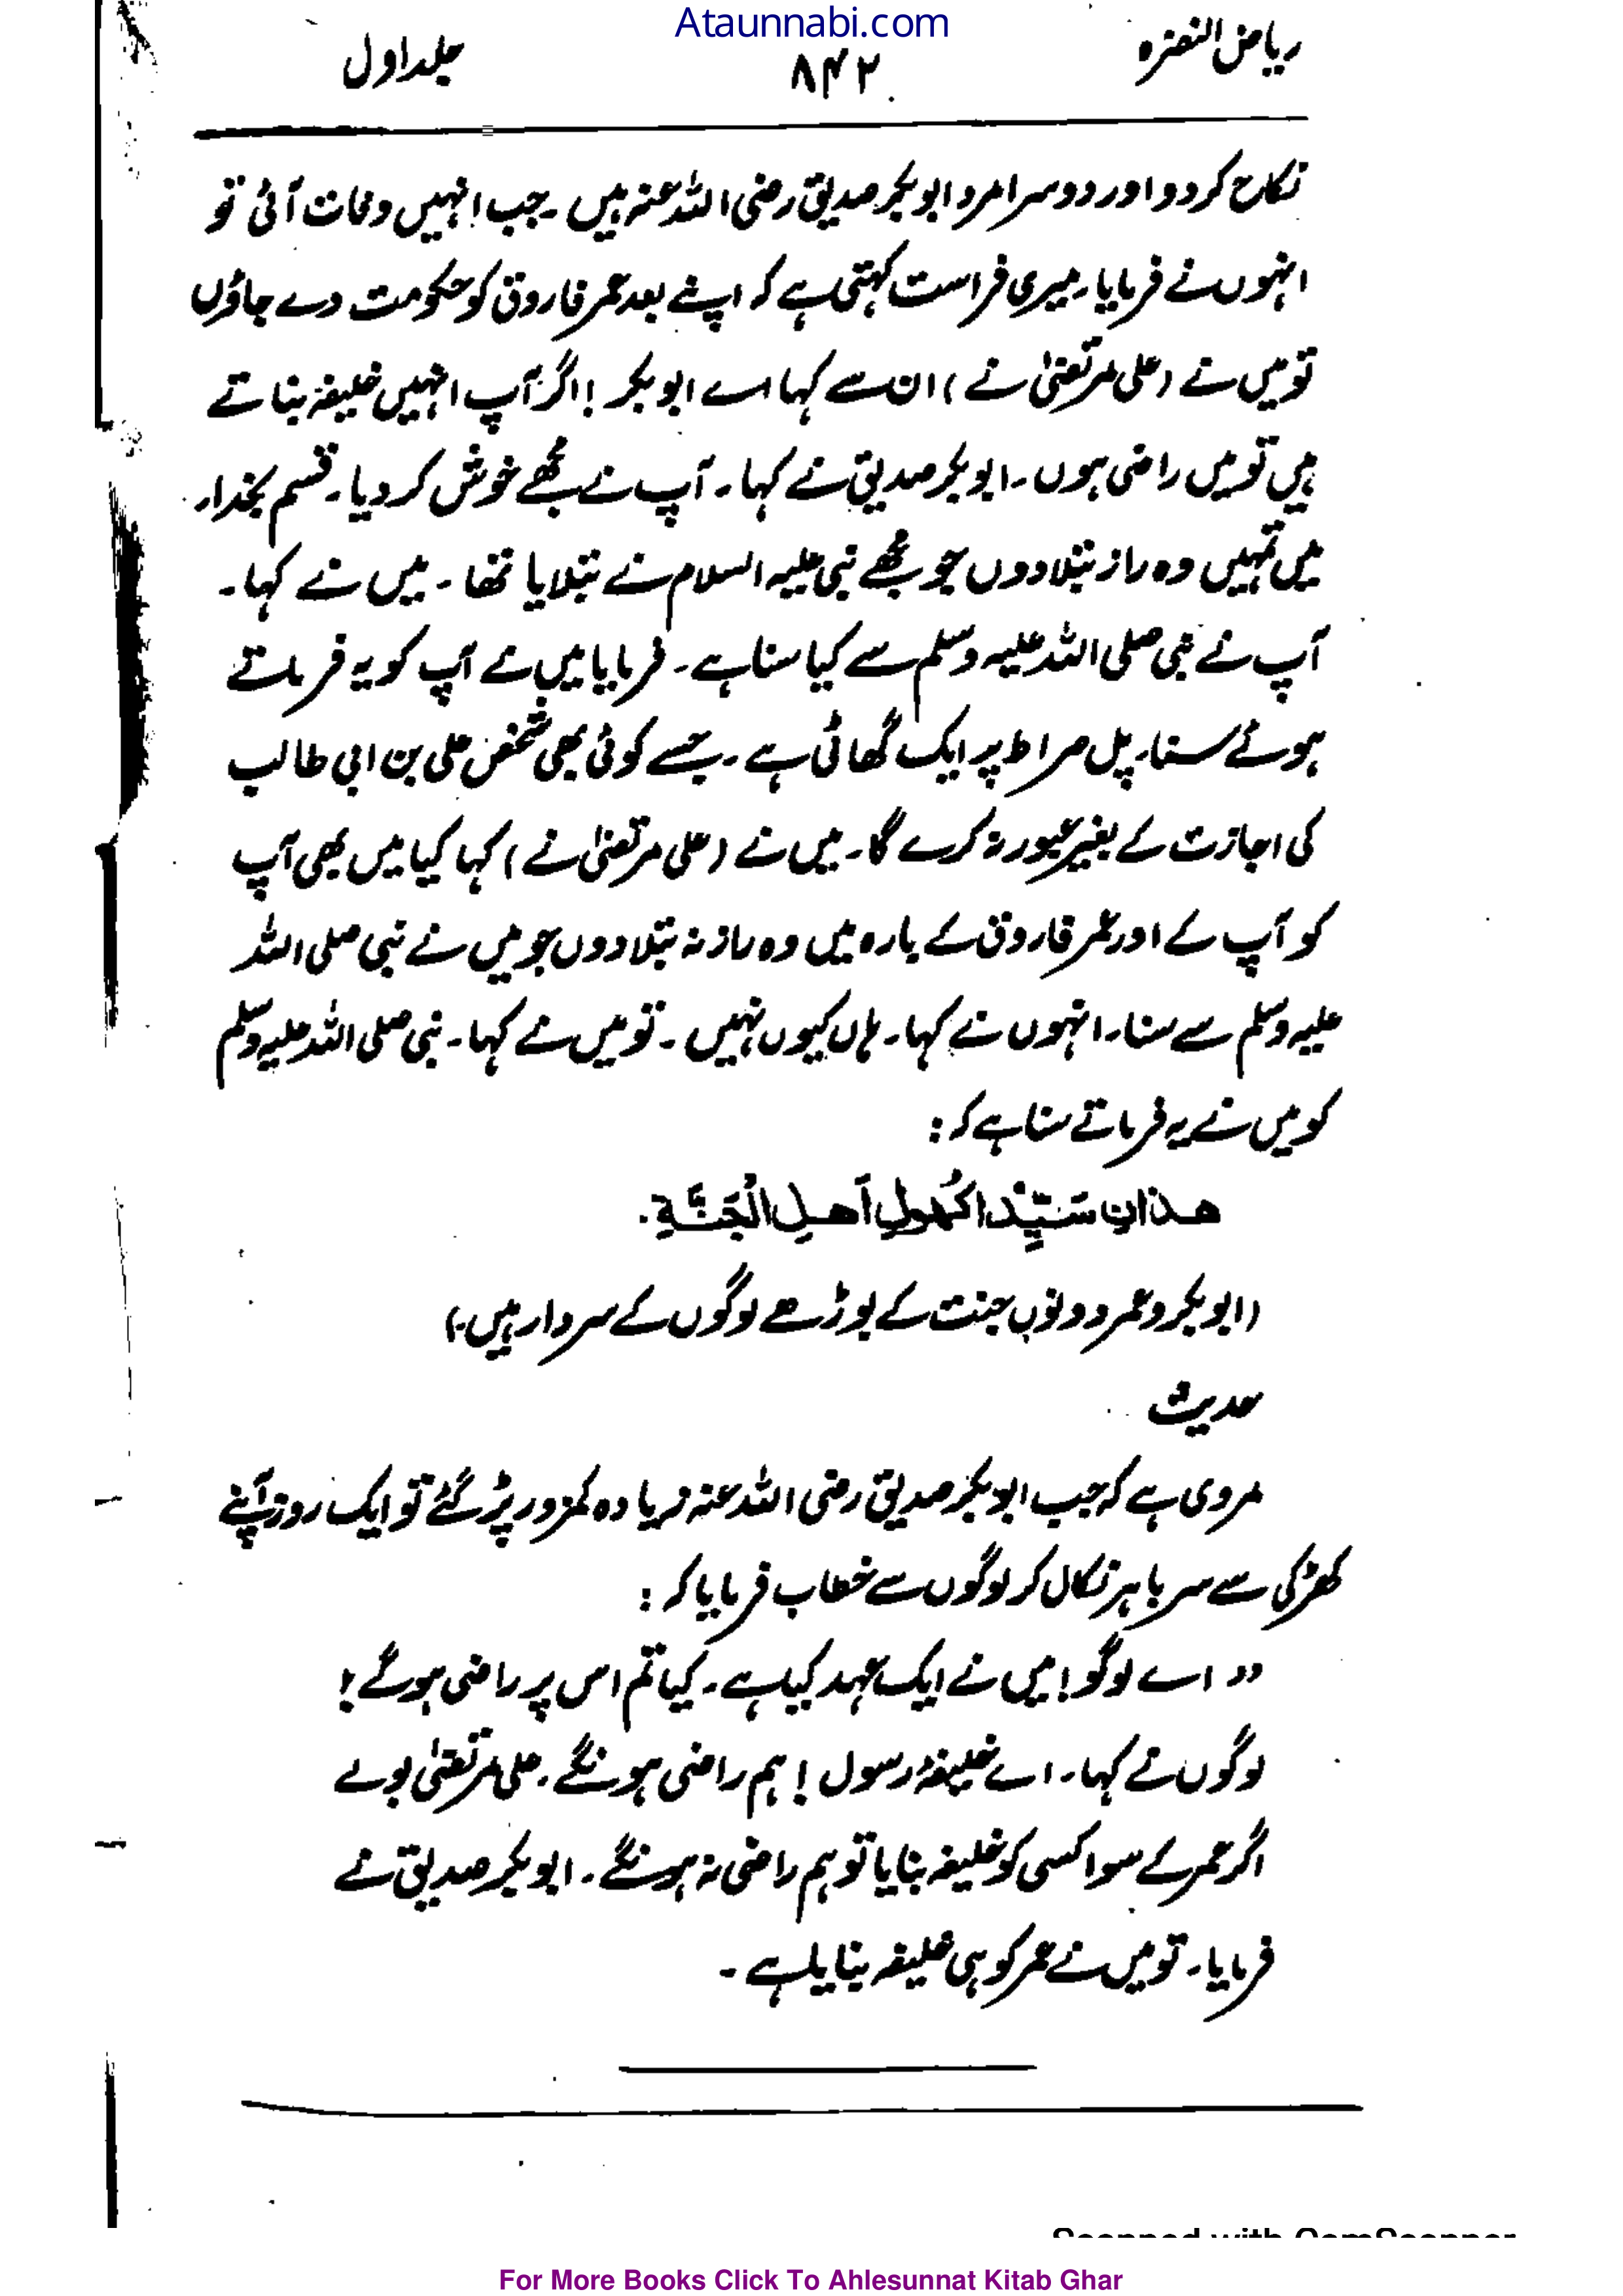 Ataunnabi.com
ریاض النضرہ ۸۴۲ جلد اول
نکاح کر دو اور دوسرا مرد ابوبکر صدیق رضی اللہ عنہ ہیں ۔ جب انہیں وفات آئی تو
انہوں نے فرمایا۔ میری فراست کہتی ہے کہ اپنے بعد عمر فاروق کو حکومت دے جاؤں
تو میں نے (علی مرتضیٰ نے) ان سے کہا اے ابوبکر! اگر آپ انہیں خلیفہ بناتے
ہیں تو میں راضی ہوں۔ ابوبکر صدیق نے کہا۔ آپ نے مجھے خوش کر دیا۔ قسم بخدا۔
میں تمہیں وہ راز بتلا دوں جو مجھے نبی علیہ السلام نے بتلایا تھا ۔ میں نے کہا۔
آپ نے نبی صلی اللہ علیہ وسلم سے کیا سنا ہے۔ فرمایا میں نے آپ کو یہ فرماتے
ہوئے سنا۔ پل صراط پر ایک گھاٹی ہے۔ جسے کوئی بھی شخص علی بن ابی طالب
کی اجازت کے بغیر عبور نہ کرے گا۔ میں نے (علی مرتضیٰ نے) کہا کیا میں بھی آپ
کو آپ کے اور عمر فاروق کے بارہ میں وہ راز نہ بتلا دوں جو میں نے نبی صلی اللہ
علیہ وسلم سے سنا۔ انہوں نے کہا۔ ہاں کیوں نہیں ۔ تو میں نے کہا۔ نبی صلی اللہ علیہ وسلم
کو میں نے یہ فرماتے سنا ہے کہ :
هذانِ سَيِّدا كُهولِ اَهلِ الْجَنَّةِ.
(ابوبکر و عمر دونوں جنت کے بوڑھے لوگوں کے سردار ہیں۔)
حدیث
مروی ہے کہ جب ابوبکر صدیق رضی اللہ عنہ زیادہ کمزور پڑ گئے تو ایک روز آپنے
کھڑکی سے سر باہر نکال کر لوگوں سے خطاب فرمایا کہ :
” اے لوگو! میں نے ایک عہد کیا ہے۔ کیا تم اس پر راضی ہو گے!
لوگوں نے کہا۔ اے خلیفۂ رسول! ہم راضی ہونگے۔ علی مرتضیٰ بولے
اگر عمر کے سوا کسی کو خلیفہ بنایا تو ہم راضی نہ ہونگے۔ ابوبکر صدیق نے
فرمایا۔ تو میں نے عمر کو ہی خلیفہ بنایا ہے ۔
Scanned with CamScanner
For More Books Click To Ahlesunnat Kitab Ghar